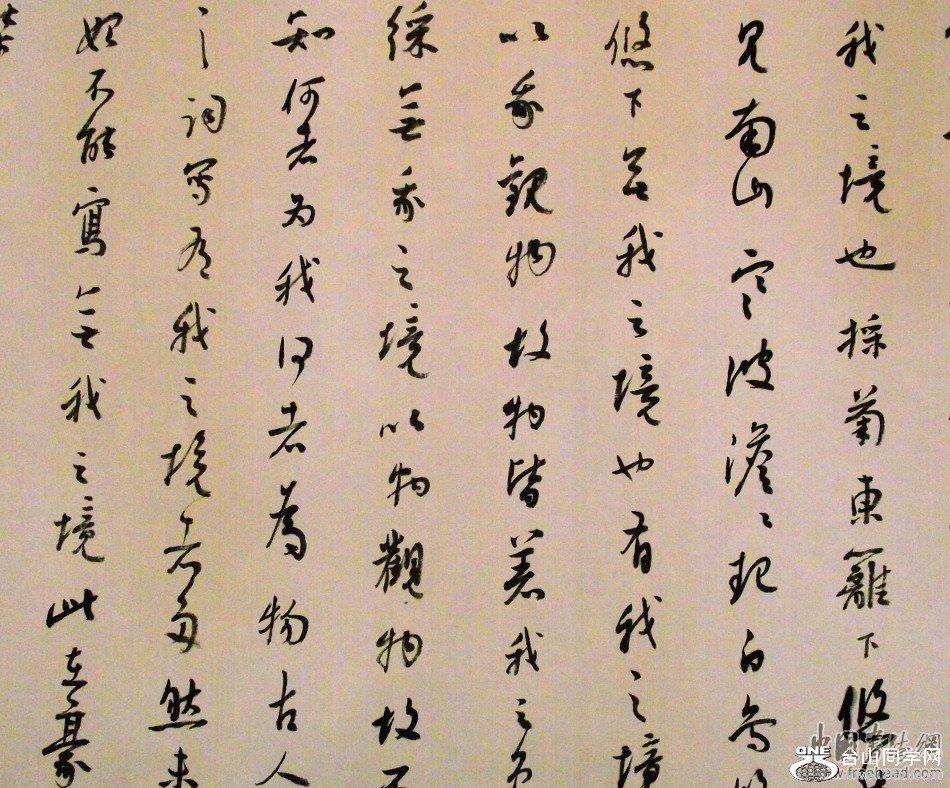 我之境也採菊東籬下悠
見南山寒波澹〻起白鳥悠
悠下無我之境也有我之境
以我觀物故物皆着我之色
綵無我之境以物觀物故不
知何者為我何者為物古人
詞寫有我之境者多然未
始不能寫無我之境此在豪
ONE 台山同学网